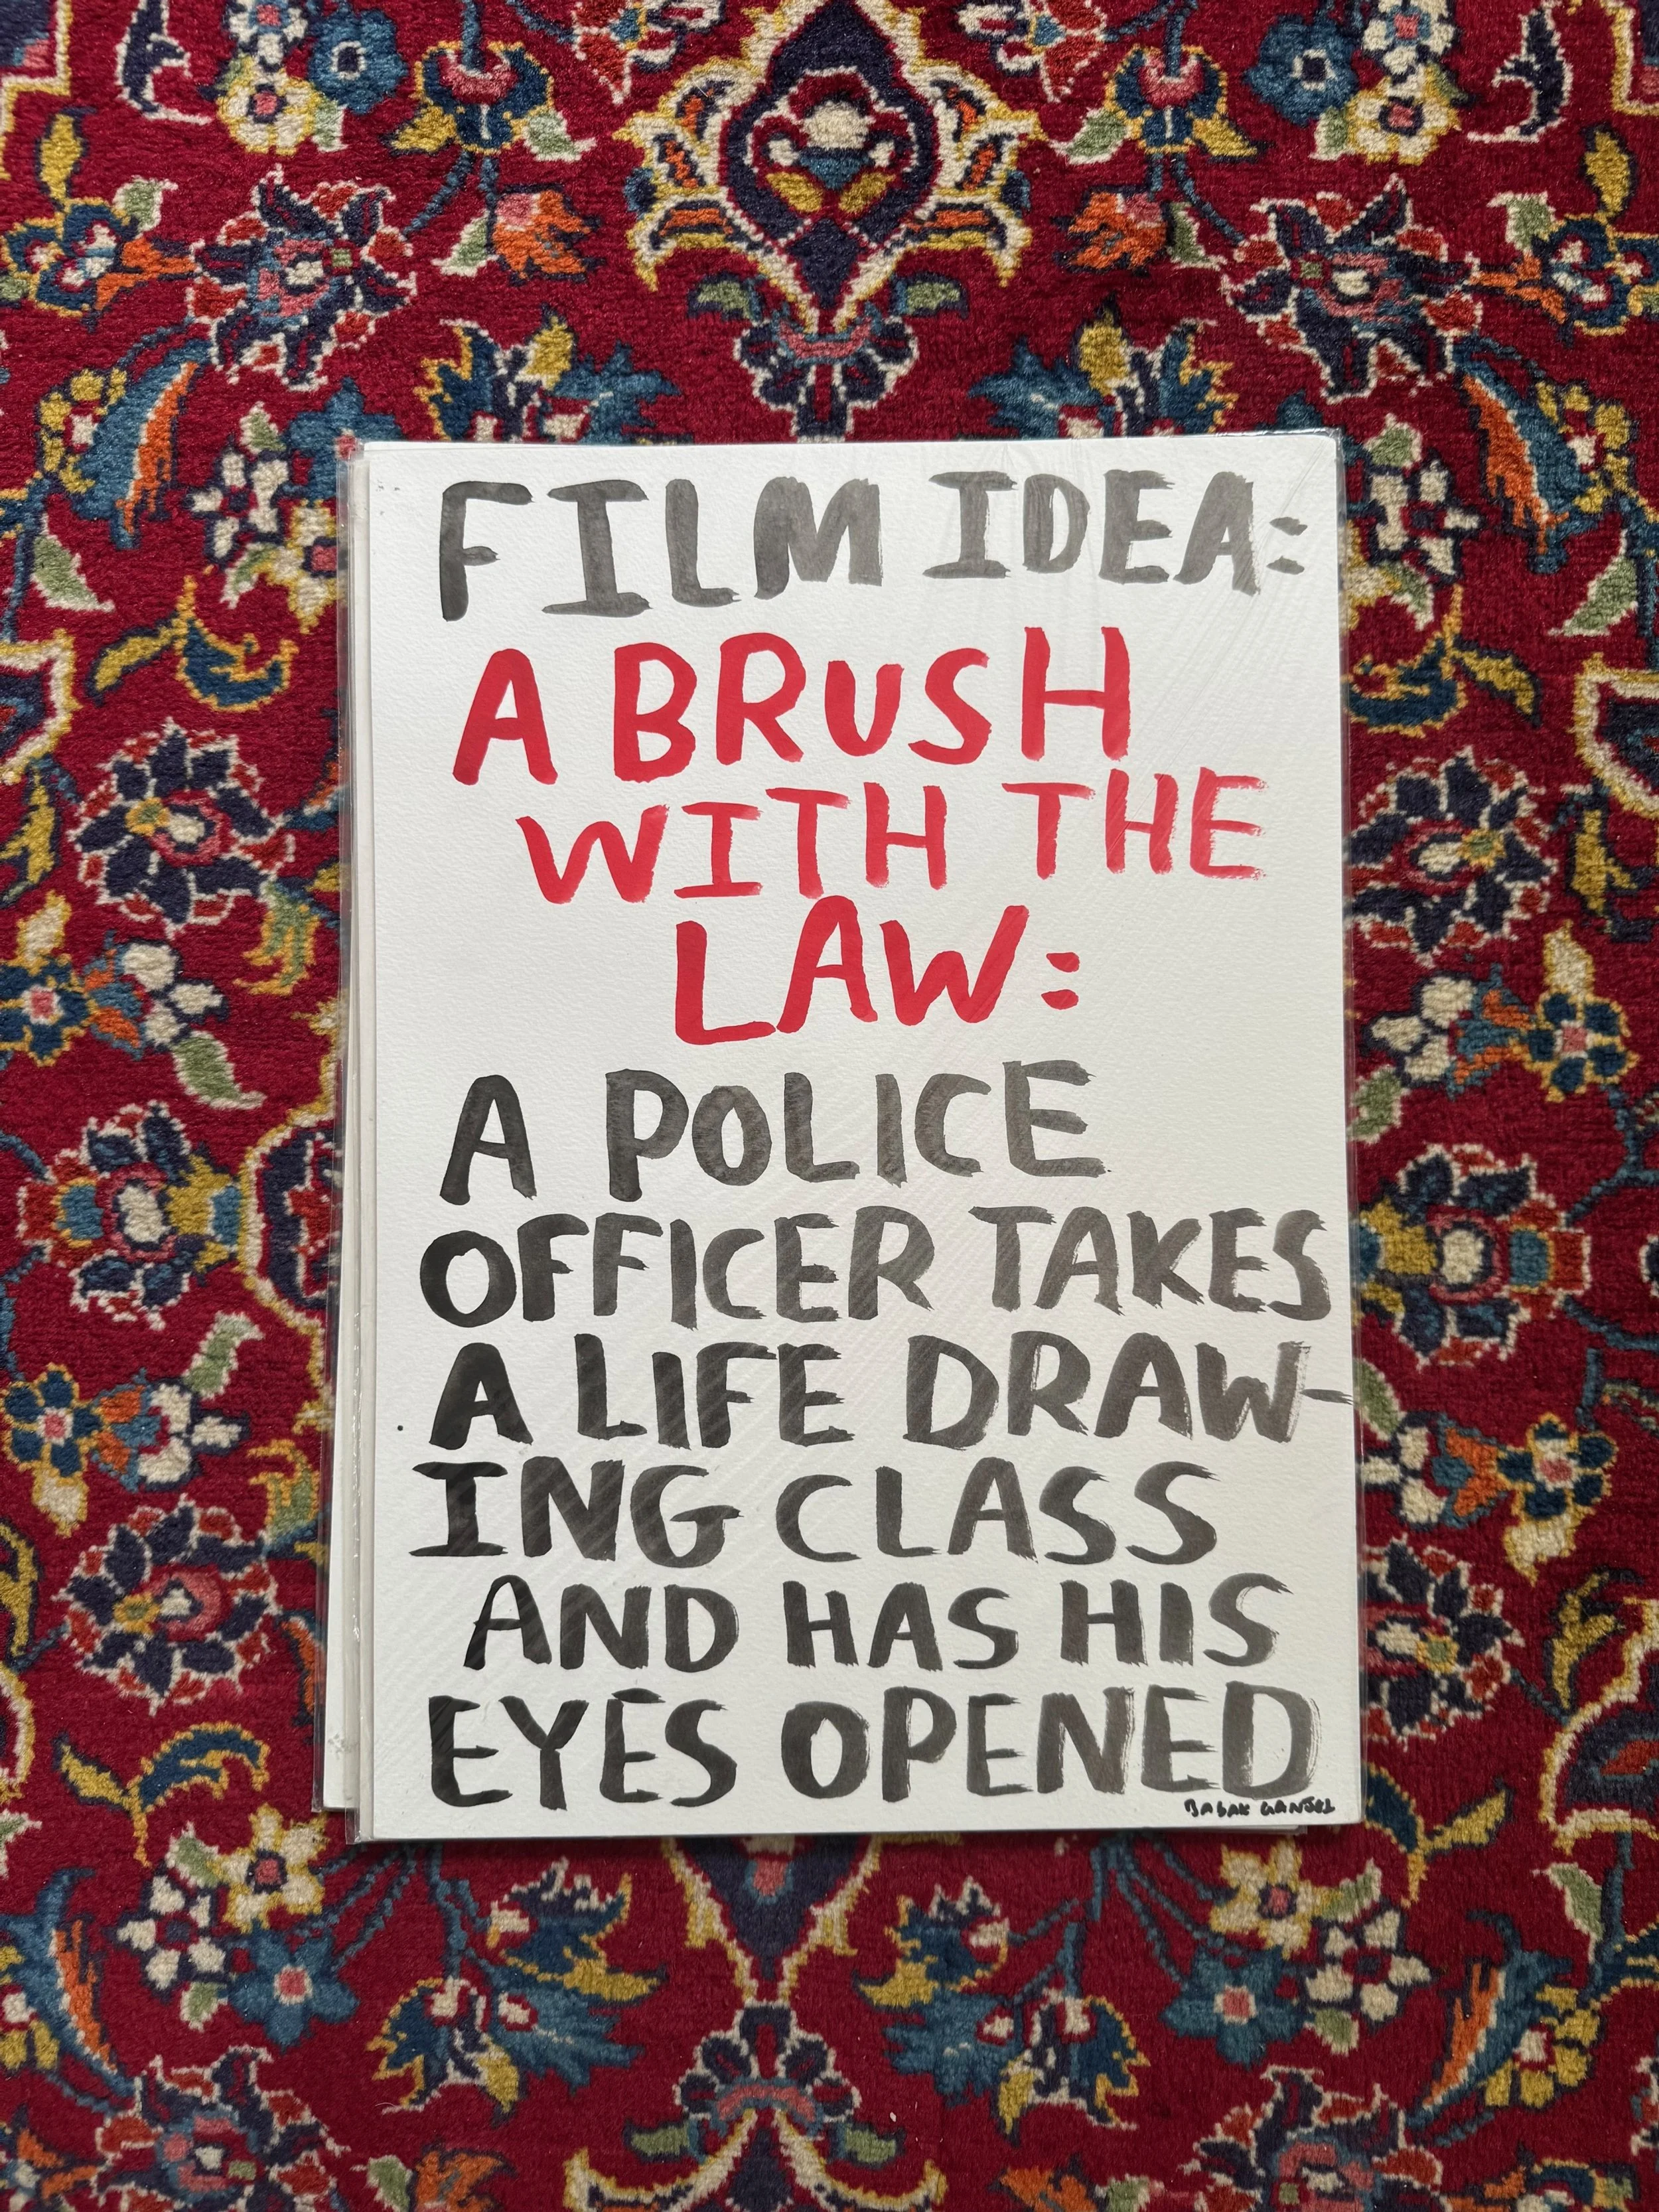 FILM IDEA:
A BRUSH
WITH THE
LAW:
A POLICE
OFFICER TAKES
A LIFE DRAW-
ING CLASS
AND HAS HIS
EYES OPENED
BABAK GANJEI